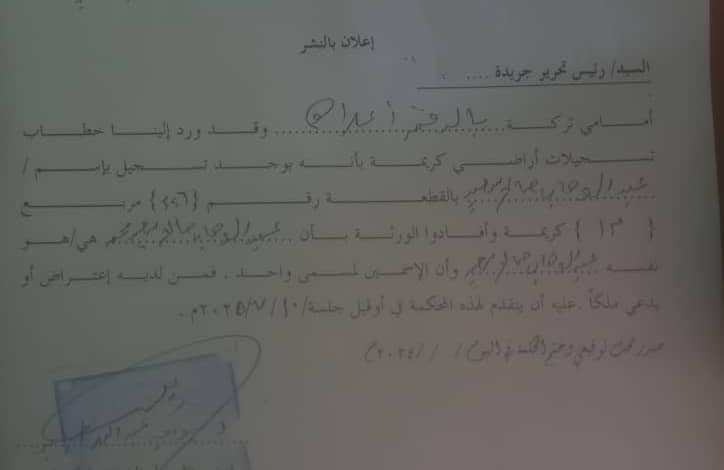 إعلان بالنشر
السيد/ رئيس تحرير جريدة ....
أمامي تركة بالرقم أعلاه وقد ورد إلينا خطاب
تسجيلات أراضي كريمة بأنه يوجد تسجيل بإسم /
عبدالوهاب صالح بالقطعة رقم {٢٧٦} مربع
{ ١٣ } كريمة وأفادوا الورثة بأن عبدالوهاب صالح محمد هي/هو
نفسه عبدالوهاب صالح وأن الإسمين لمسمى واحد . فمن لديه إعتراض أو
يدعي ملكاً .عليه أن يتقدم لهذه المحكمة في أوقبل جلسة/١٠/٧/٢٠٢٥م .
صدر تحت توقيعي وختم المحكمة في اليوم / / /٢٠٢٤م